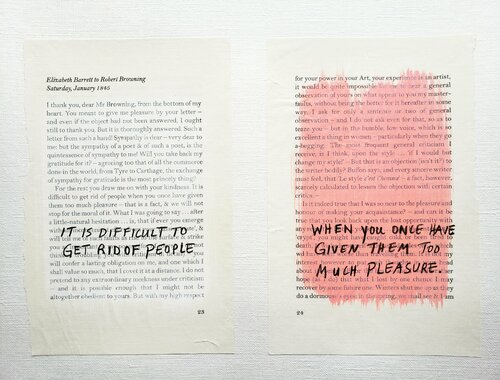 Elizabeth Barrett to Robert Browning
Saturday, January 1845
I thank you, dear Mr Browning, from the bottom of my
heart. You meant to give me pleasure by your letter –
and even if the object had not been answered, I ought
still to thank you. But it is thoroughly answered. Such a
letter from such a hand! Sympathy is dear – very dear to
me: but the sympathy of a poet & of such a poet, is the
quintessence of sympathy to me! Will you take back my
gratitude for it? – agreeing too that of all the commerce
done in the world, from Tyre to Carthage, the exchange
of sympathy for gratitude is the most princely thing!
For the rest you draw me on with your kindness. It is
difficult to get rid of people when you once have given
them too much pleasure – that is a fact, & we will not
stop for the moral of it. What I was going to say ... after
a little natural hesitation ... is, that if ever you emerge
IT IS DIFFICULT TO
GET RID OF PEOPLE
will confer a lasting obligation on me, and one which I
shall value so much, that I covet it at a distance. I do not
pretend to any extraordinary meekness under criticism
– and it is possible enough that I might not be
altogether obedient to yours. But with my high respect
23
for your power in your Art, your experience as an artist,
it would be quite impossible for me to hear a general
observation of yours on what appear to you my master-
faults, without being the better for it hereafter in some
way. I ask for only a sentence or two of general
observation – and I do not ask even for that, so as to
teaze you – but in the humble, low voice, which is so
excellent a thing in women – particularly when they go
a-begging! The most frequent general criticism I
receive, is, I think, upon the style ... 'if I would but
change my style!' But that is an objection (isn't it?) to
the writer bodily? Buffon says, and every sincere writer
must feel, that 'Le style c'est l'homme' – a fact, however,
scarcely calculated to lessen the objection with certain
critics.
It is indeed true that I was so near to the pleasure and
honour of making your acquaintance? – and can it be
true that you look back upon the lost opportunity with
WHEN YOU ONCE HAVE
GIVEN THEM TOO
MUCH PLEASURE.
24